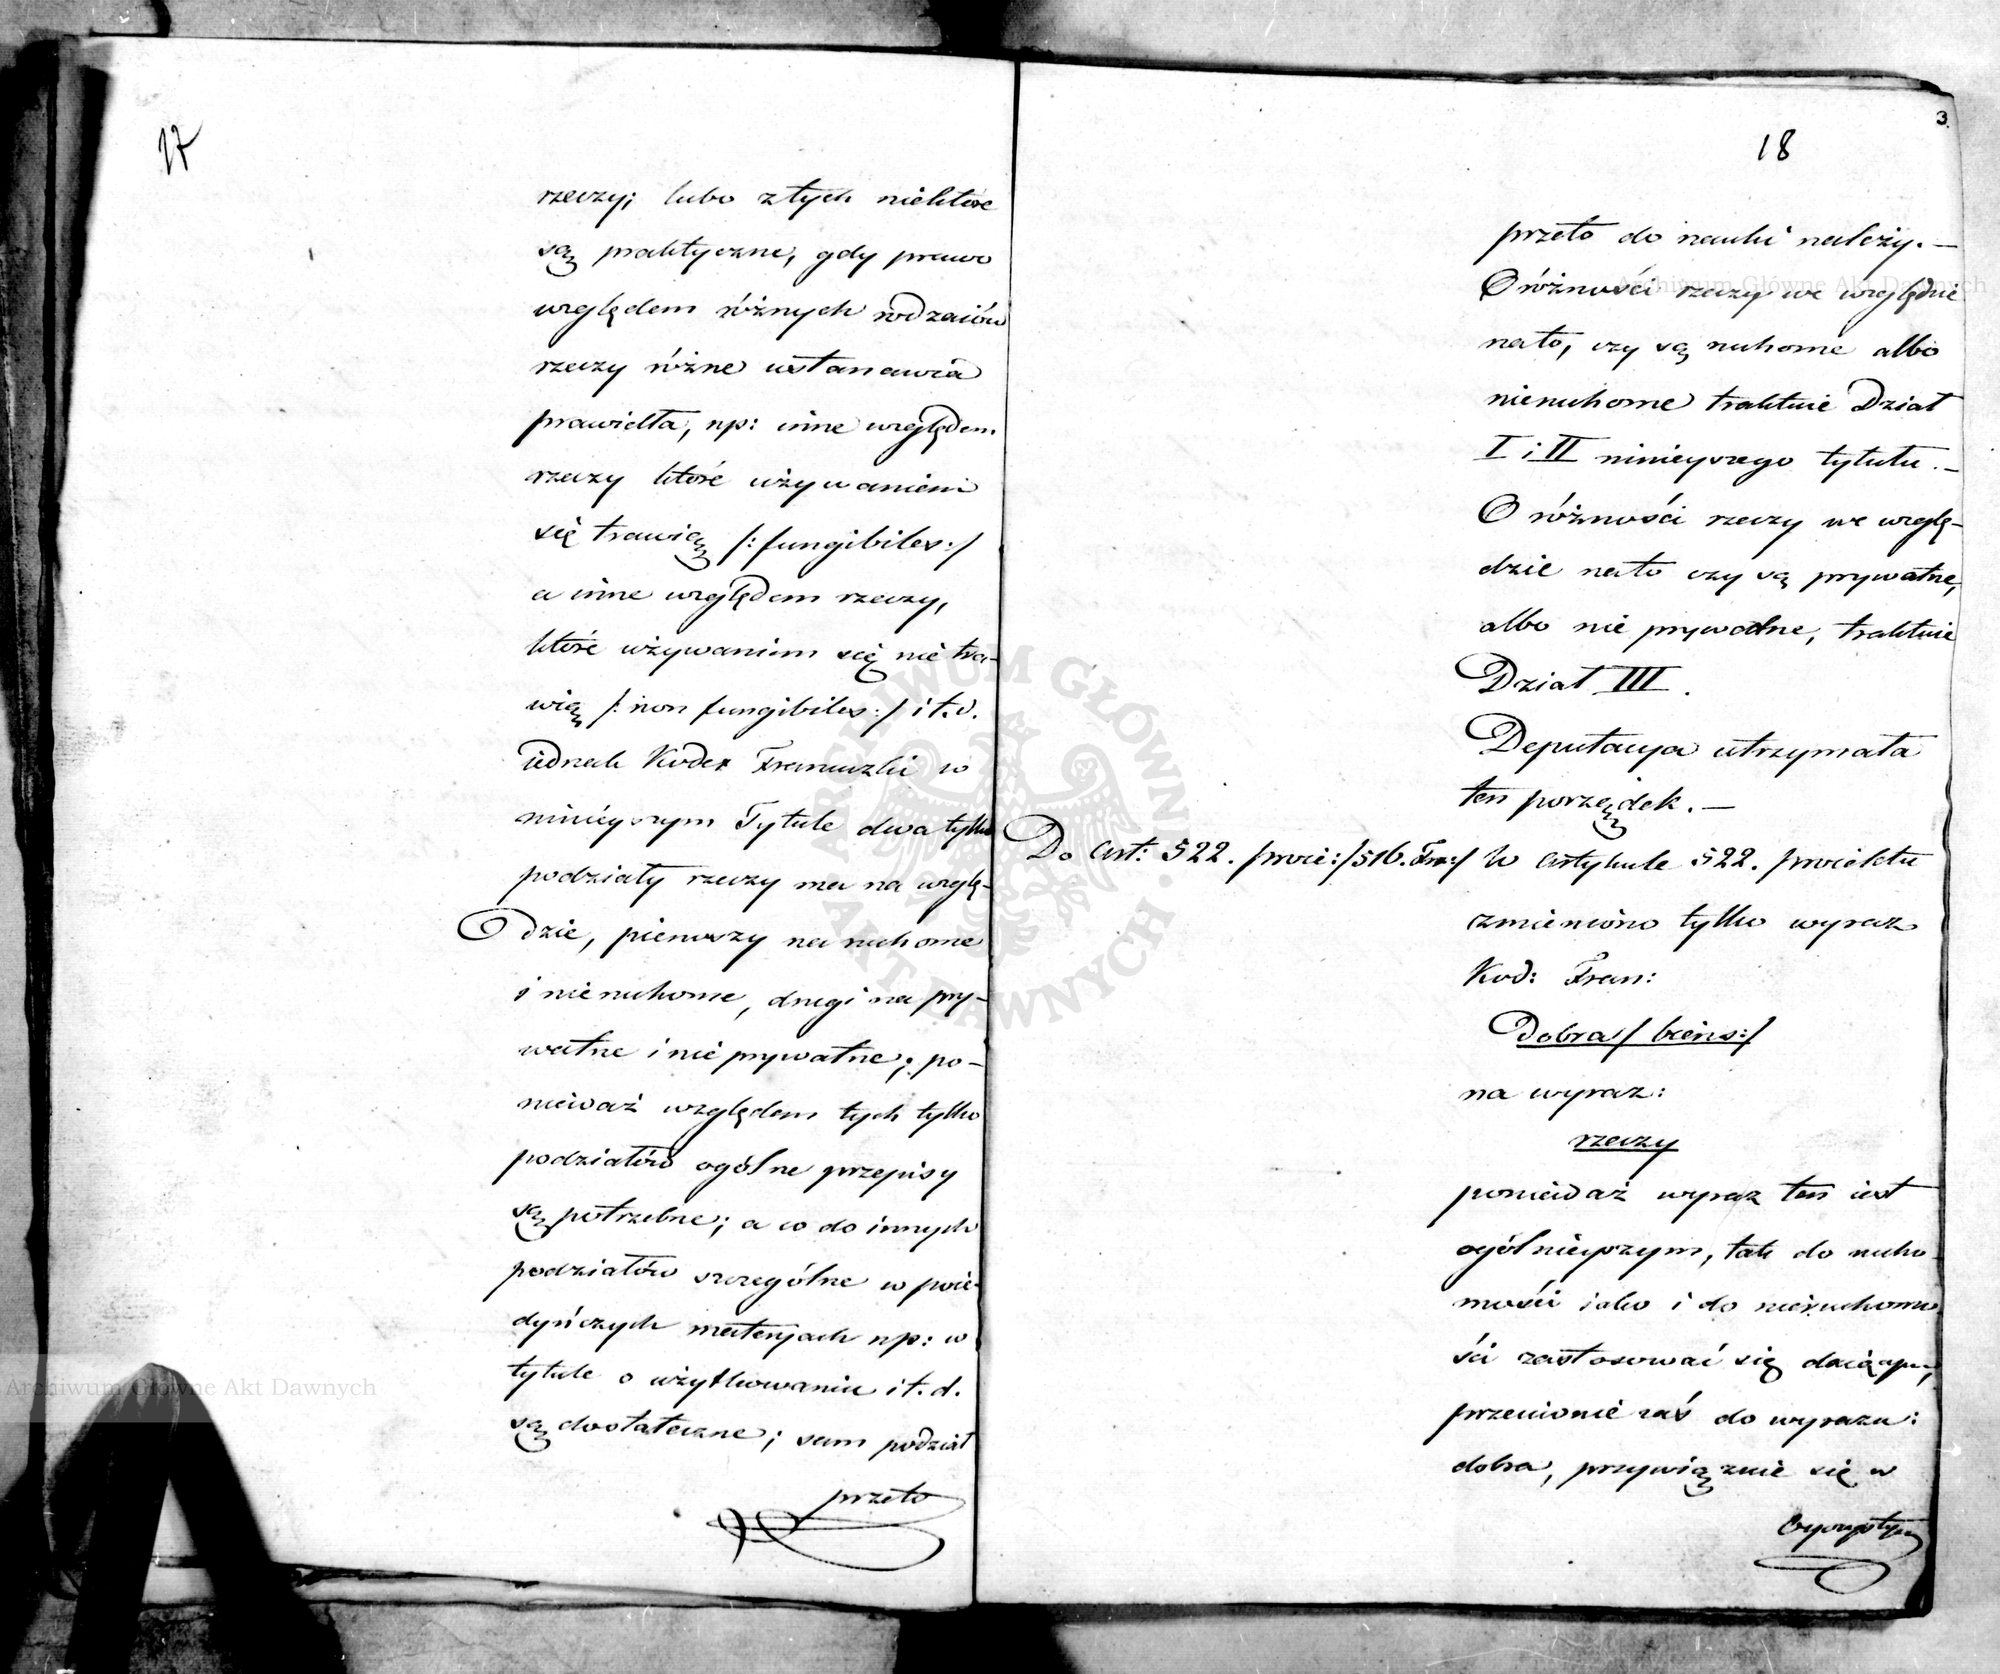 17
rzeczy; lubo z tych niektóre
są praktyczne, gdy prawo
względem różnych rodzaiów
rzeczy różne ustanawia
prawidła, np: inne względem
rzeczy które używaniem
się trawią /: fungibiles :/
a inne względem rzeczy,
które używaniem się nie tra-
wią /: non fungibiles :/ i t. d.
iednak Kodex Francuzki w
ninieyszym Tytule dwa tylko
podziały rzeczy ma na wzglę-
dzie, pierwszy na ruchome
i nieruchome, drugi na pry-
watne i nie prywatne; po-
nieważ względem tych tylko
podziałów ogólne przepisy
są potrzebne; a co do innych
podziałów szczególne w poie-
dyńczych materyach np: w
tytule o użytkowaniu i t. d.
są dostateczne; sam podział
przeto
3.
18
przeto do nauki należy. —
O różności rzeczy we względzie
na to, czy są ruchome albo
nieruchome traktuie Dział
I i II ninieyszego tytułu. —
O różności rzeczy we wzglę-
dzie na to czy są prywatne,
albo nie prywatne, traktuie
Dział III.
Deputacya utrzymała
ten porządek. —
Do Art: 522. proie: /516. Fra:/ W Artykule 522. proiektu
zmieniono tylko wyraz
Kod: Fran:
Dobra /: biens :/
na wyraz:
rzeczy
ponieważ wyraz ten iest
ogólnieyszym, tak do rucho-
mości iako i do nieruchomo-
ści zastosować się daiącym,
przeciwnie zaś do wyrazu:
dobra, przywiązuie się w
oyczystym
Archiwum Główne Akt Dawnych
Archiwum Główne Akt Dawnych
ARCHIWUM GŁÓWNE
AKT DAWNYCH